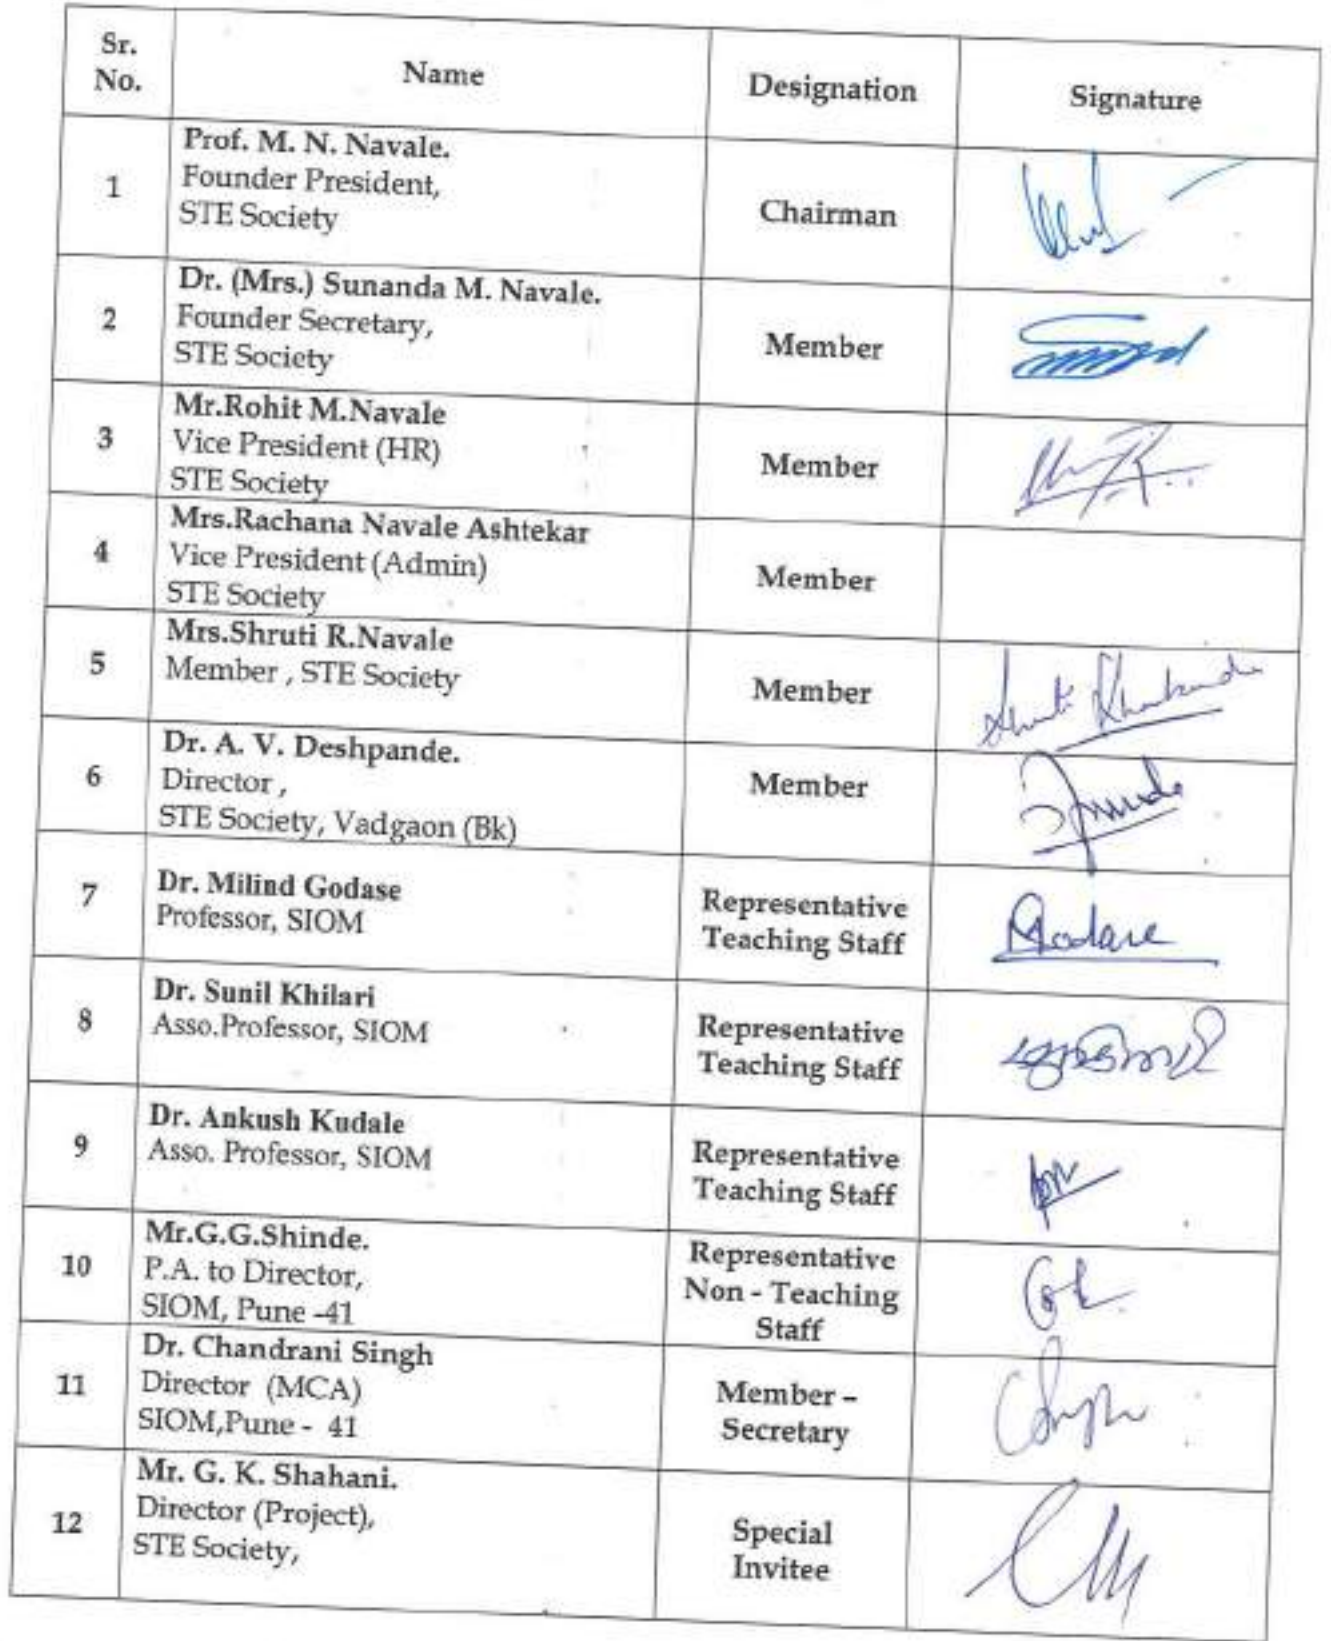 Sr.
No.
Name
Designation
Signature
1
Prof. M. N. Navale.
Founder President,
STE Society
Chairman
2
Dr. (Mrs.) Sunanda M. Navale.
Founder Secretary,
STE Society
Member
3
Mr.Rohit M.Navale
Vice President (HR)
STE Society
Member
4
Mrs.Rachana Navale Ashtekar
Vice President (Admin)
STE Society
Member
5
Mrs.Shruti R.Navale
Member , STE Society
Member
6
Dr. A. V. Deshpande.
Director ,
STE Society, Vadgaon (Bk)
Member
7
Dr. Milind Godase
Professor, SIOM
Representative
Teaching Staff
8
Dr. Sunil Khilari
Asso.Professor, SIOM
Representative
Teaching Staff
9
Dr. Ankush Kudale
Asso. Professor, SIOM
Representative
Teaching Staff
10
Mr.G.G.Shinde.
P.A. to Director,
SIOM, Pune -41
Representative
Non - Teaching
Staff
11
Dr. Chandrani Singh
Director (MCA)
SIOM,Pune - 41
Member –
Secretary
12
Mr. G. K. Shahani.
Director (Project),
STE Society,
Special
Invitee